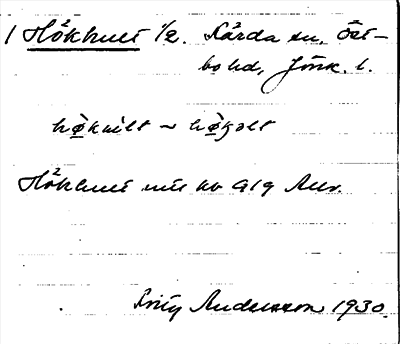 1 Hökhult 1/2. Kårda sn, Öst-
bo hd, Jönk. l.
hø̀ku̇lt ~ hø̀kolt
Hökhult mtl kb
Fritz Andersson 1930.